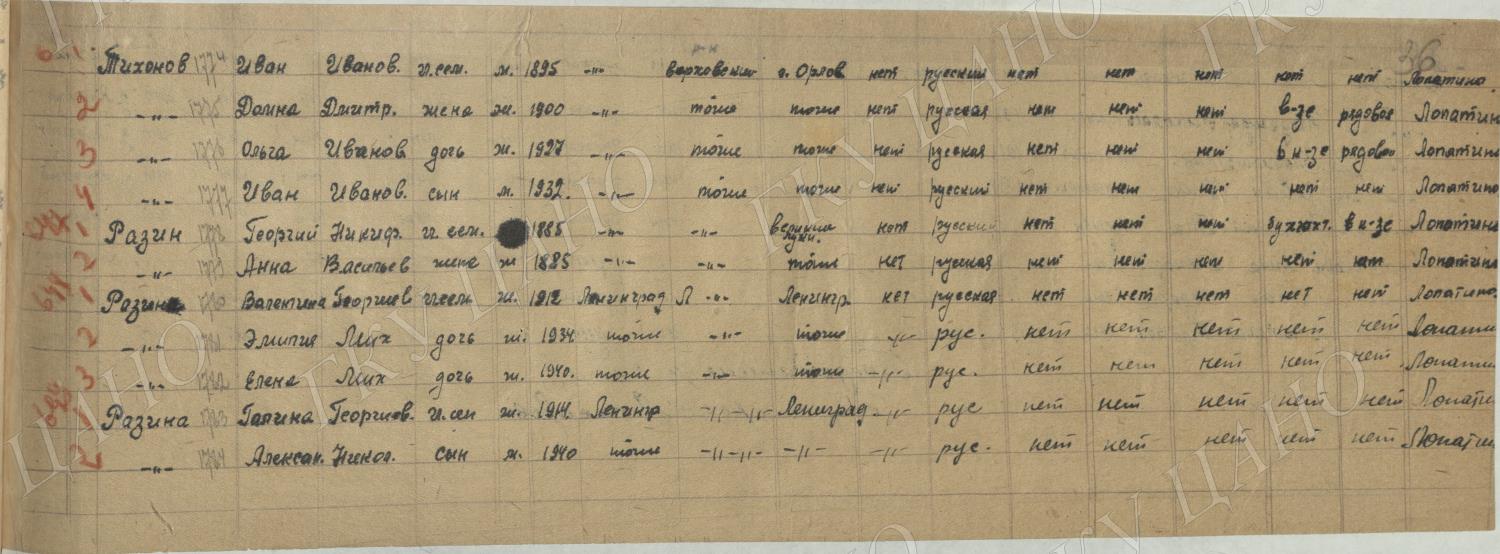 36
р-н
1 Тихонов 1774 Иван Иванов. гл.сем. м. 1895 -"- верховский г. Орлов нет русский нет нет нет нет нет Лопатино.
2 -"- 1775 Домна Дмитр. жена ж. 1900 -"- тоже тоже нет русская нет нет нет в-зе рядовое Лопатин
3 -"- 1776 Ольга Иванов дочь ж. 1927 -"- тоже тоже нет русская нет нет нет в к-зе рядовое Лопатино
4 -"- 1777 Иван Иванов. сын м. 1932. -"- тоже тоже нет русский нет нет нет нет нет Лопатино
1 Разин 1778 Георгий Никиф. гл. сем. 1885 -"- -"- нет русский нет нет нет бухгалт. в к-зе Лопатино
2 -"- 1779 Анна Васильев жена ж 1885 -"- -"- тоже нет русская нет нет нет нет нет Лопатино
1 Разина 1780 Валентина Георгиев гл.сем ж. 1912 Ленинград Л -"- Ленингр. нет русская нет нет нет нет нет Лопатино.
2 -"- 1781 Эмилия Мих дочь ж. 1934 тоже -"- тоже -"- рус. нет нет нет нет нет Лопатин
3 -"- 1782 Елена Мих дочь ж. 1940. тоже -"- тоже -"- рус. нет нет нет нет нет Лопатин
1 Разина 1783 Галина Георгиев. гл.сем ж. 1914 Ленингр -"-"- Лениград -"- рус нет нет нет нет нет Лопатин
2 -"- 1784 Алексан. Никол. сын м. 1940 тоже -"-"- -"- -"- рус. нет нет нет нет нет Лопатин
ГКУ ЦАНО